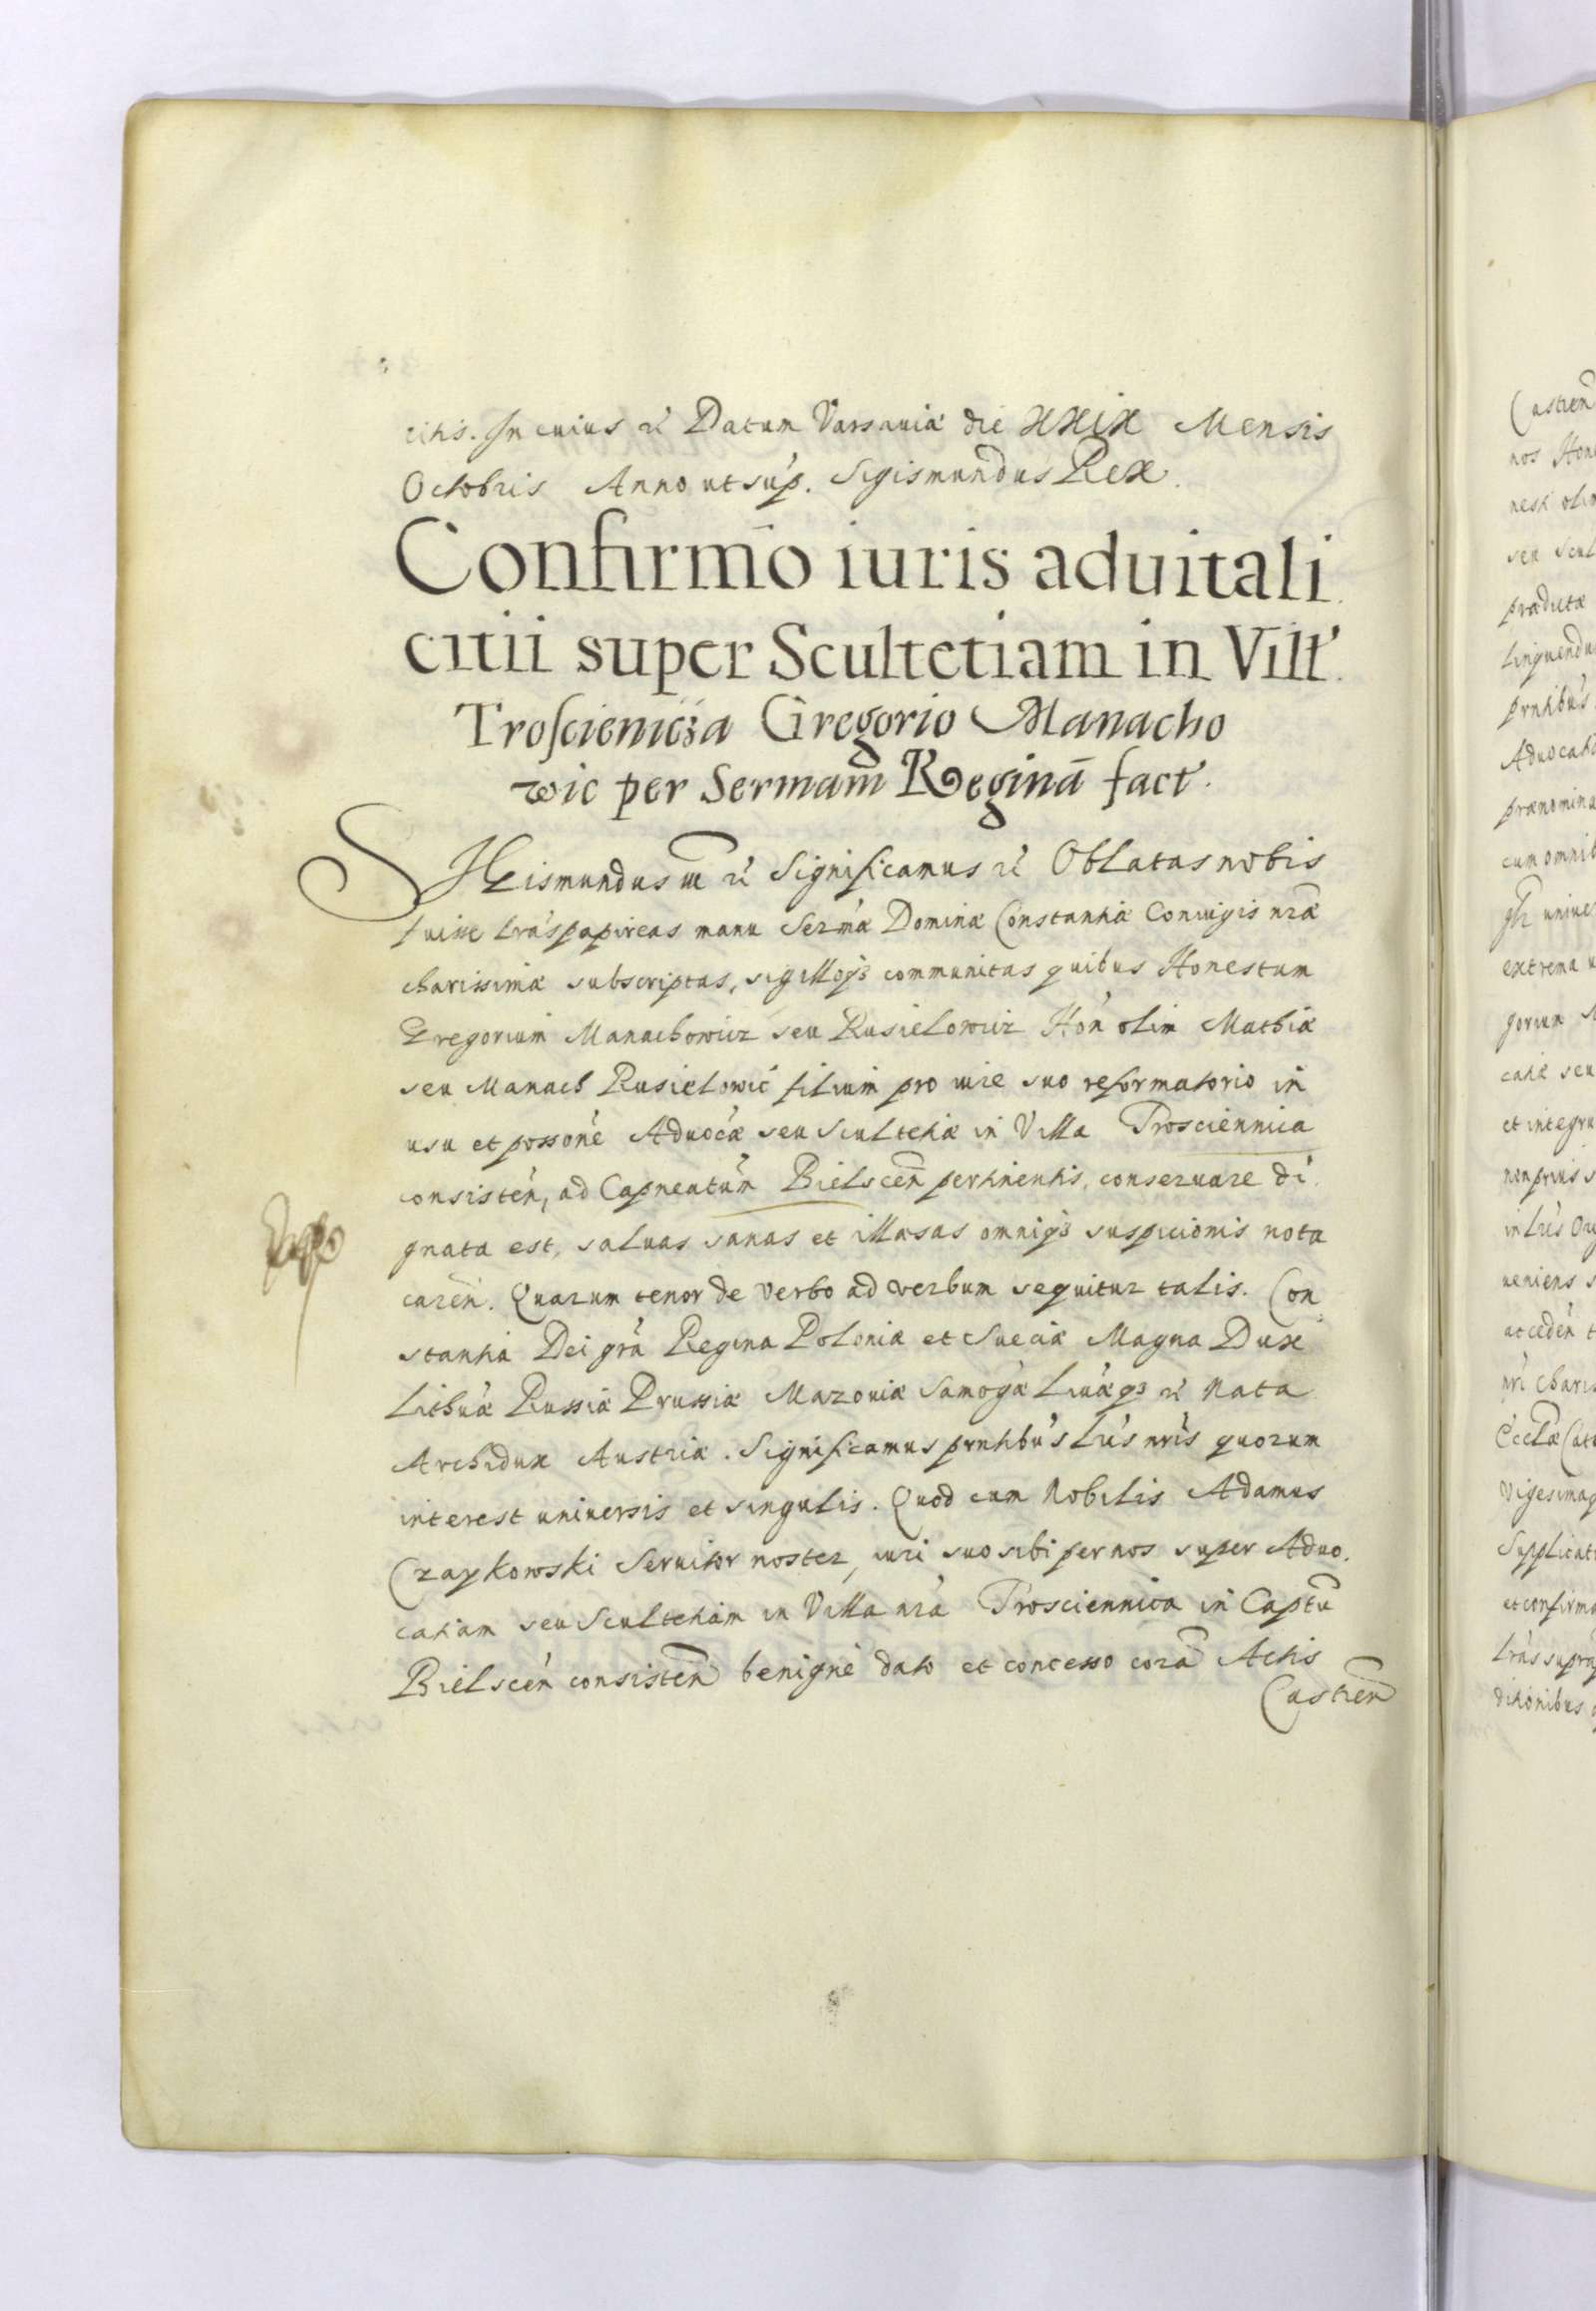 citis. In cuius rẻ Datum Varsaviæ die XXIX Mensis
Octobris Anno ut sup. Sigismundus Rex.
Confirmo̅ iuris aduitali
citii super Scultetiam in Vill'
Troscienicza Gregorio Manacho
wic per Sermam̅ Reginā fact'.
SIgismundus III rẻ Significamus rẻ Oblatas nobis
fuisse lrás papireas manu Sermæ Dominæ Constantiæ Coniugis nræ
charissimæ subscriptas, sigilloq3 communitas quibus Honestum
Gregorium Manachowicz seu Rusielowicz Hon' olim Mathiæ
seu Manach Rusielowic filium pro iure suo reformatorio in
usu et possone Aduocæ seu Scultetiæ in Villa Trosciennica
consisten, ad Capneatum Bielscen pertinentis, conseruare di
gnata est, saluas sanas et illæsas omniq3 suspicionis nota
caren. Quarum tenor de verbo ad verbum sequitur talis. Con
stantia Dei gra Regina Poloniæ et Sueciæ Magna Dux
Lithuæ Russiæ Prussiæ Mazouiæ Samogæ Liuæq3 rẻ Nata
Archidux Austriæ. Significamus prntibus lris nris quorum
interest uniuersis et singulis. Quod cum Nobilis Adamus
Czaykowski Seruitor noster, iuri suo sibi per nos super Aduo
catiam seu Scultetiam in Villa nra Trosciennica in Captu
Bielscen consisten benigne dato et concesso cora Actis
Castren
Castren
nos Hon
nest olim
seu Scul
prædictæ
Linquendu
prntibus
Aduocati
prænomina
cum omnib
extrema u
gorium M
catiæ seu
et integru
non prius s
ueniens s
acceden t
nri charis
Supplicati
et confirma
ditionibus